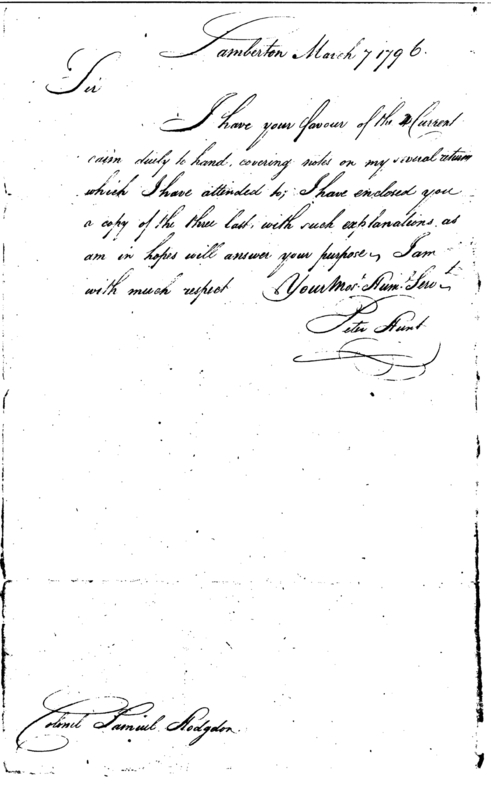 Lamberton March 7 1796.
Sir
I have your favour of the 4 Current
caim duely to hand, covering notes on my several return
which I have attended to; I have enclosed you
a copy of the three last, with such explanations, as
am in hopes will answer your purpose, I am
with much respect Your Mos.t Hum.l Serv.t
Peter Hunt
Colonel Samuel Hodgdon